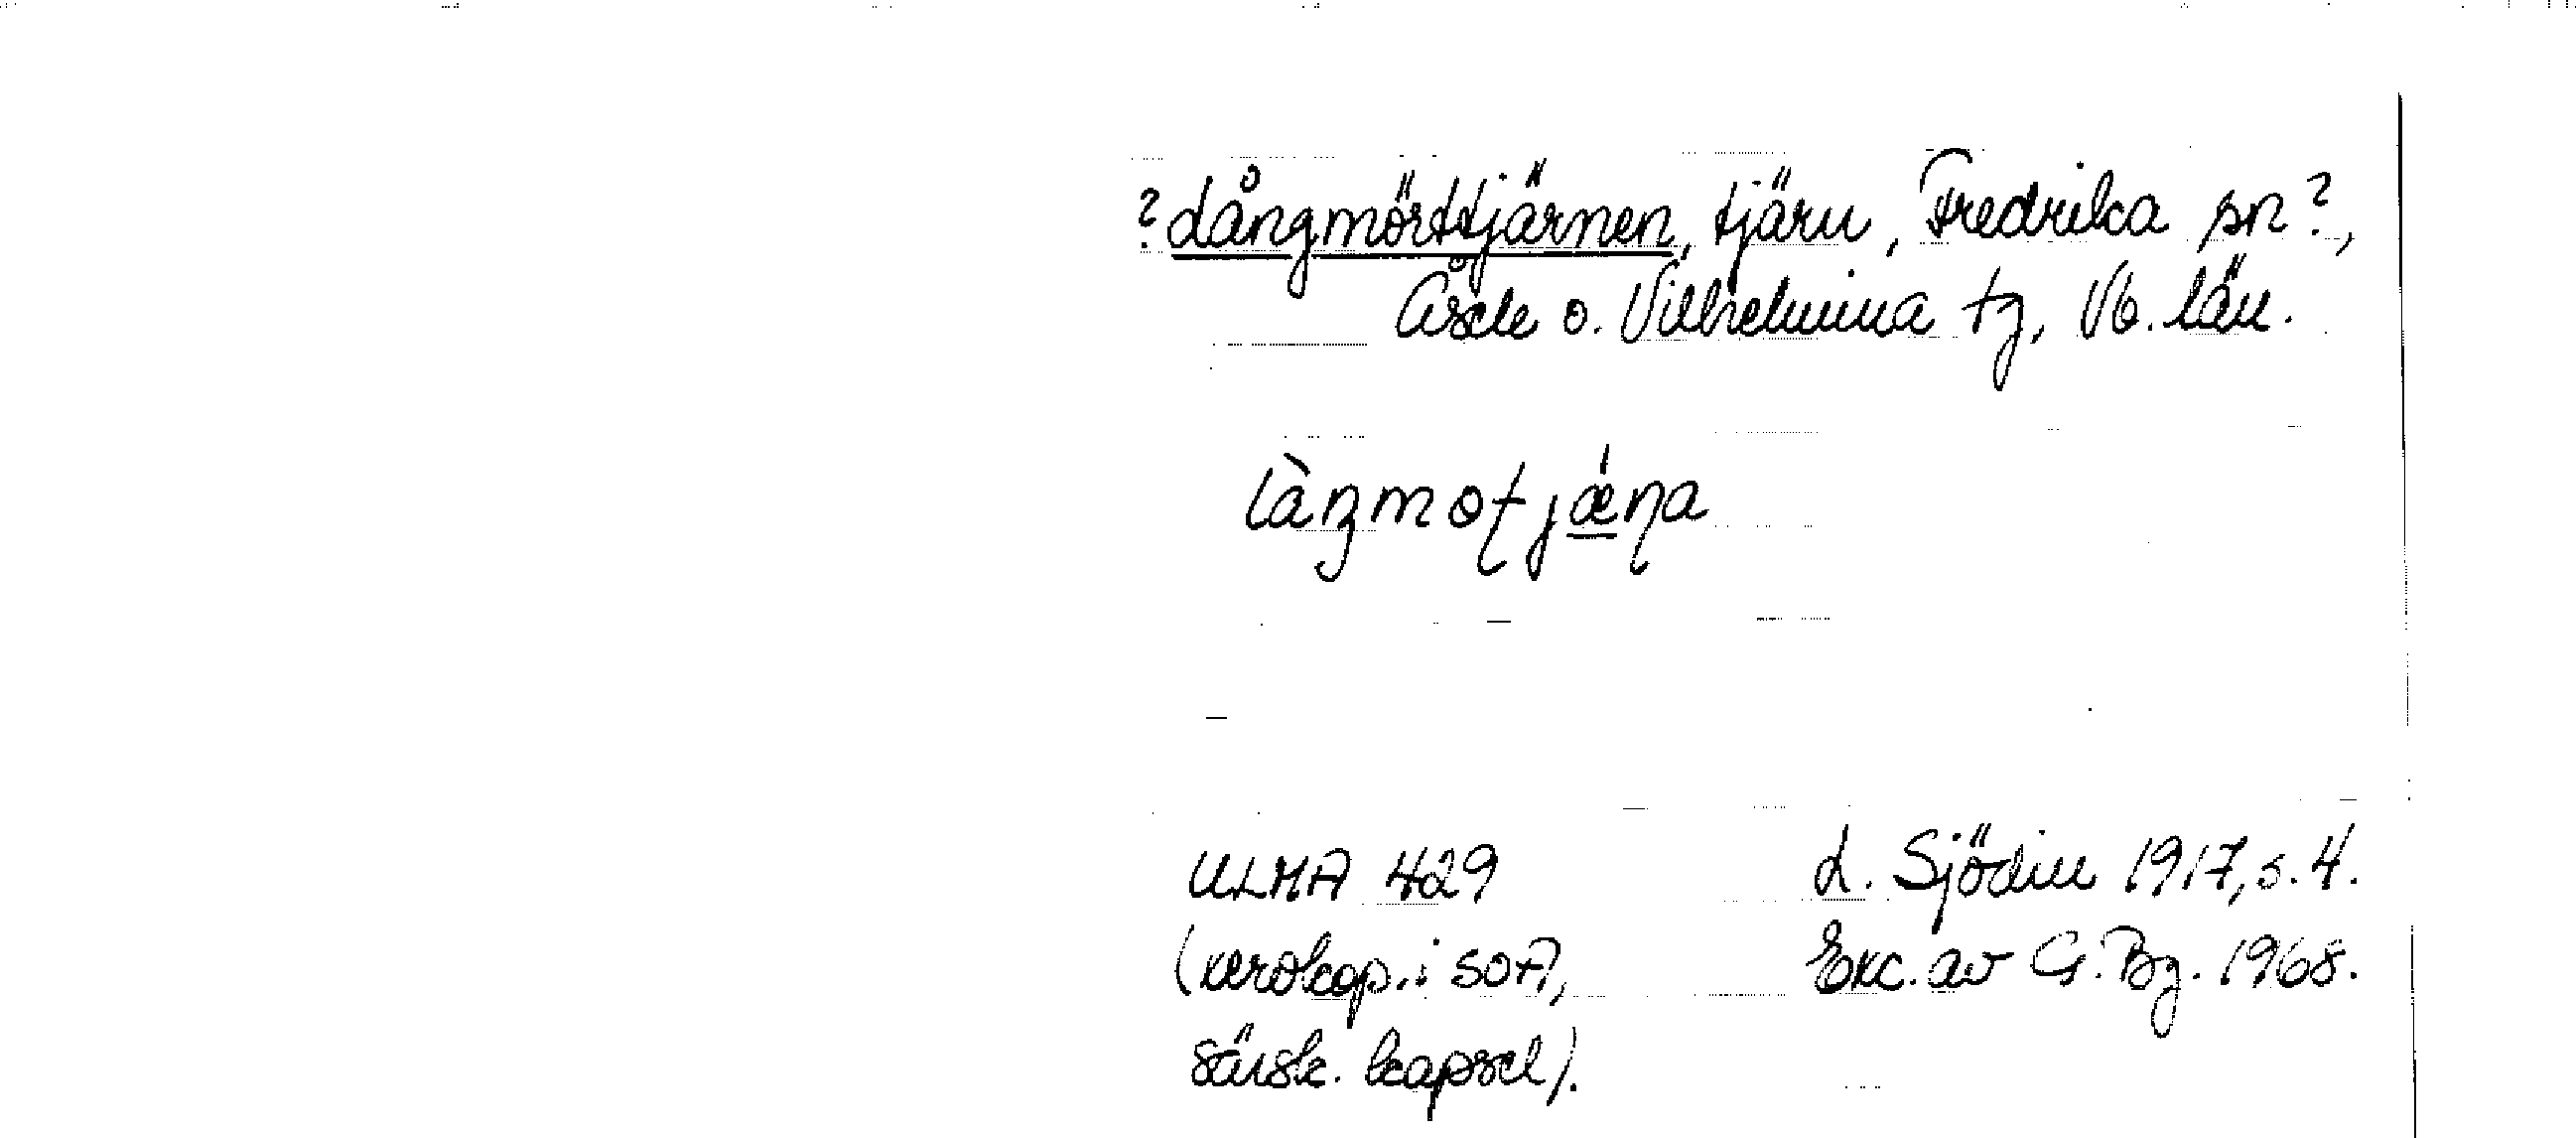 ? Långmörttjärnen, tjärn, Fredrika sn?,
Åsele o. Vilhelmina tg, Vb. län.
làŋmoʈjǽɳa
ULMA 429
L. Sjödin 1917, s. 4.
(xerokop. i SOA,
Exc. av G. Bg. 1968.
särsk. kapsel).